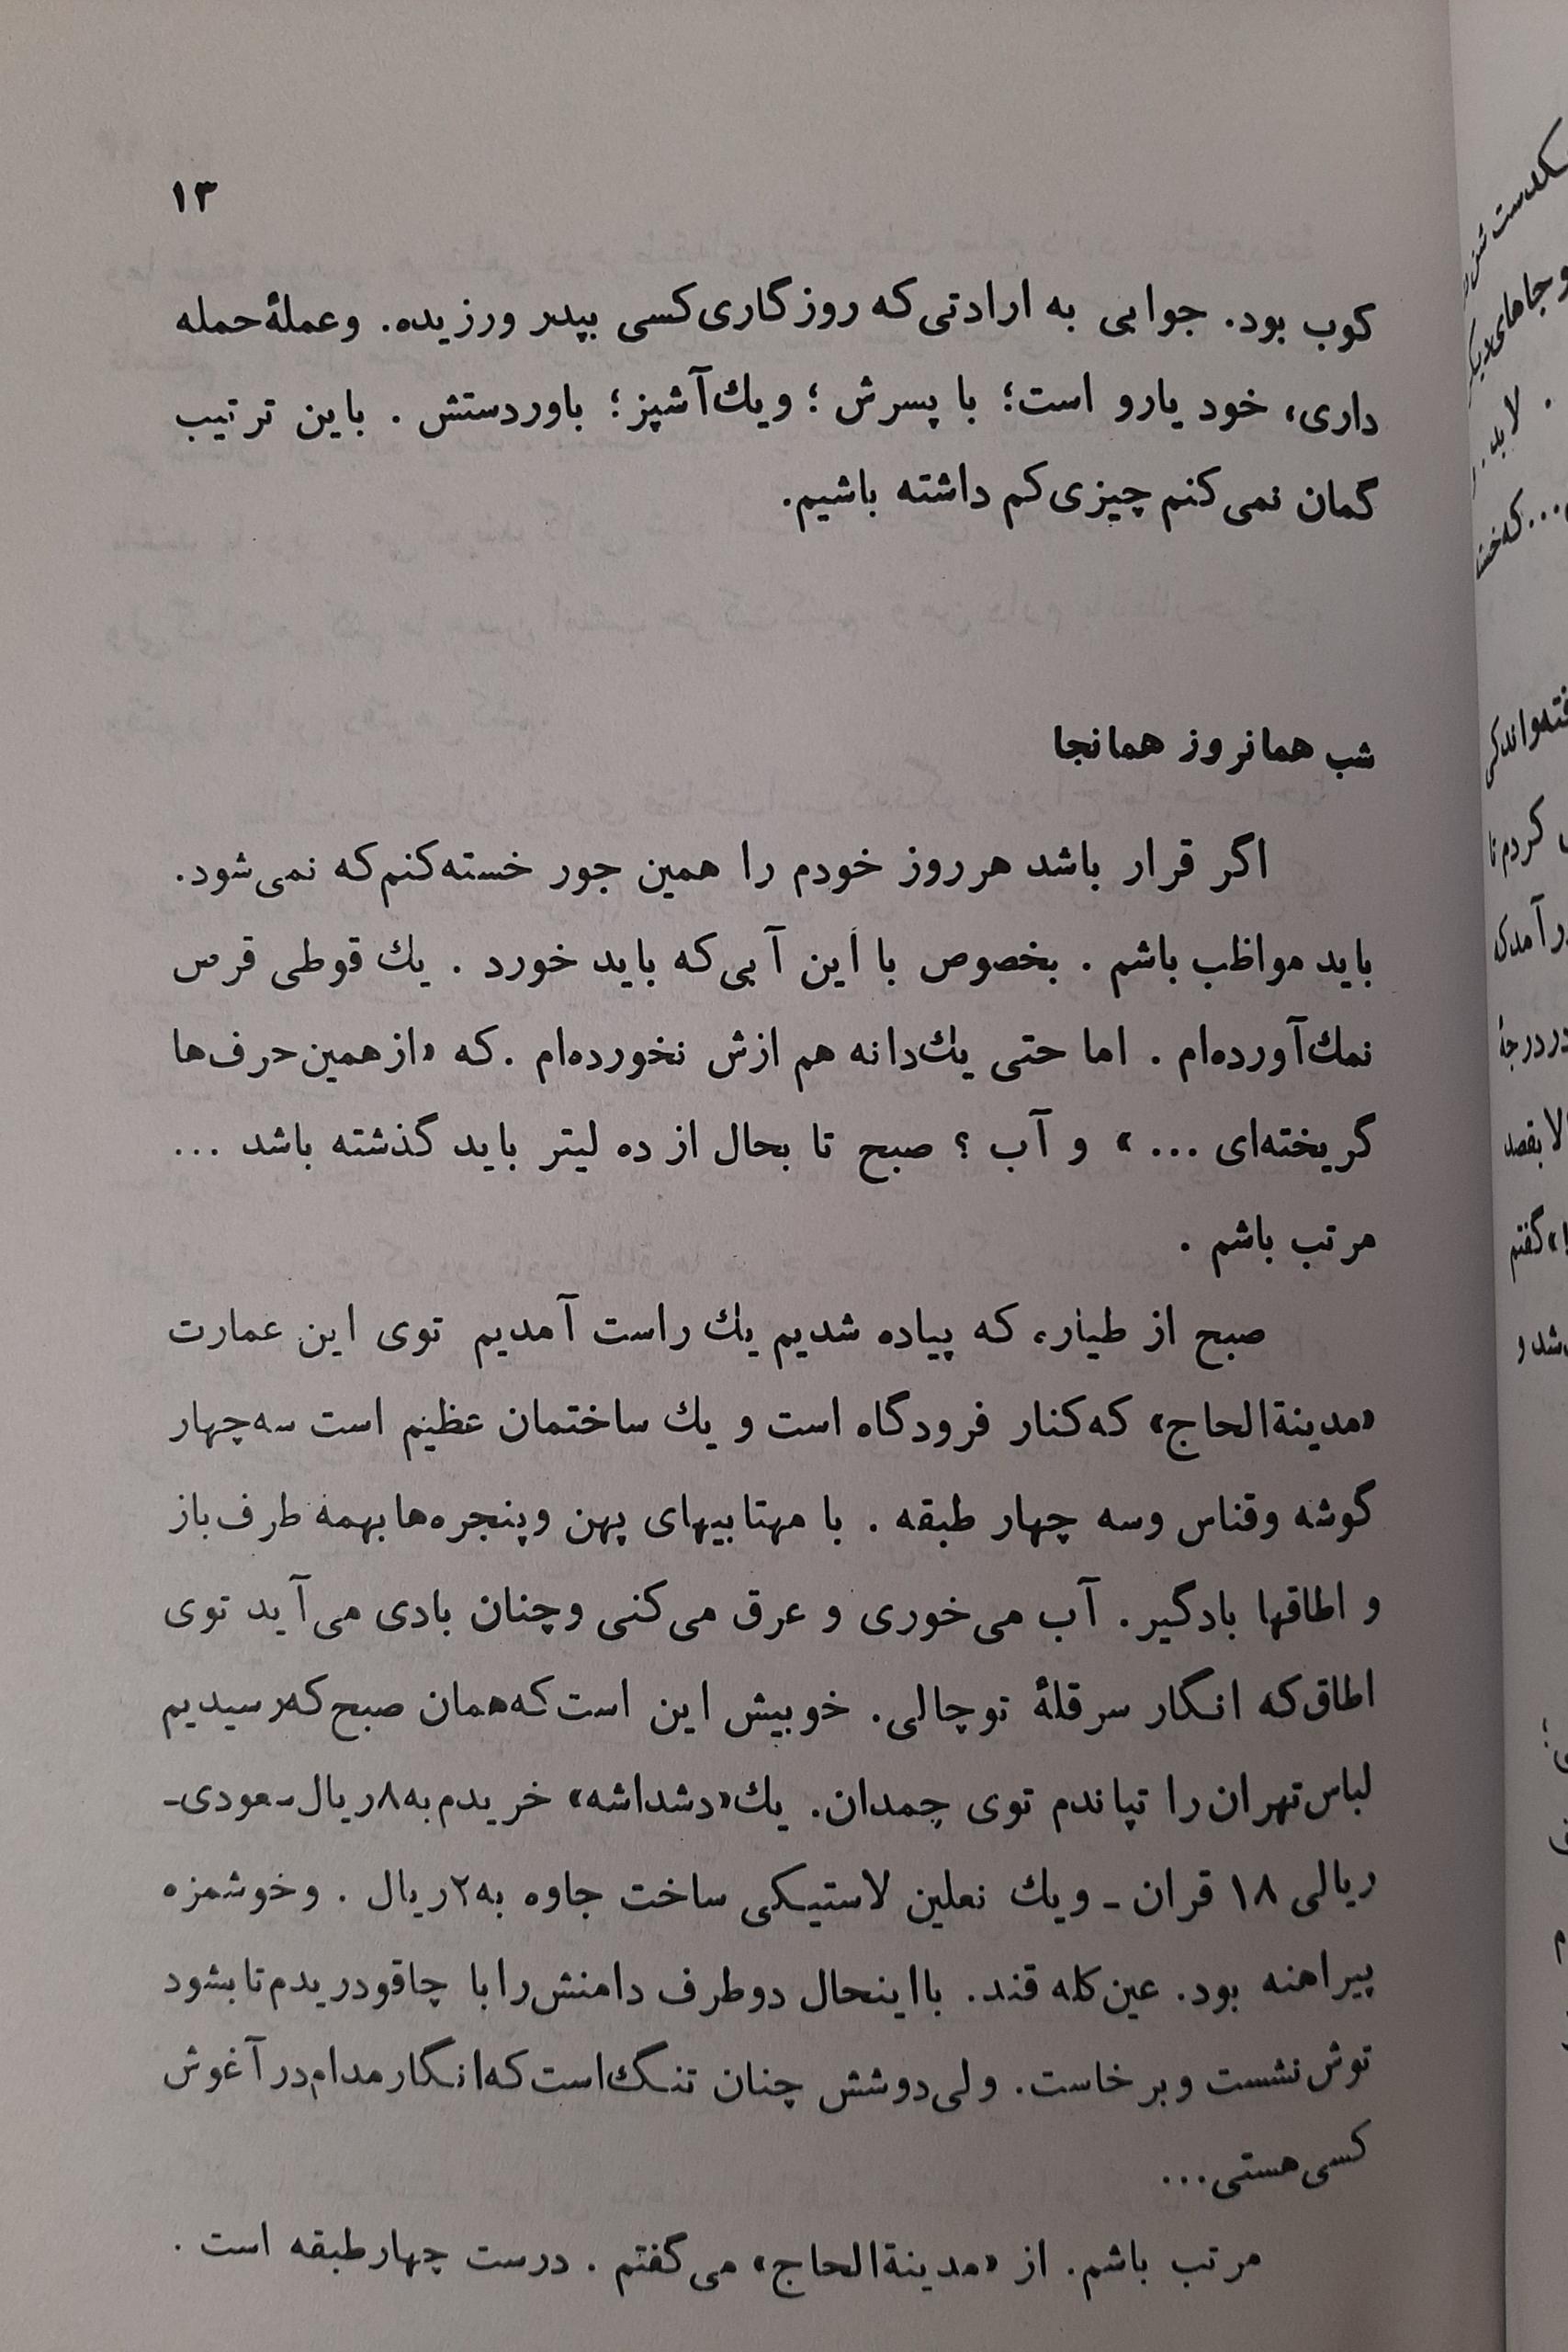 ۱۳
کوب بود. جوابی به ارادتی که روزگاری کسی بپدر ورزیده. وعملهٔ حمله
داری، خود یارو است؛ با پسرش ؛ ویك آشپز؛ باوردستش . باین ترتیب
گمان نمی کنم چیزی کم داشته باشیم.
شب همانروز همانجا
اگر قرار باشد هرروز خودم را همین جور خسته کنم که نمی شود.
باید مواظب باشم . بخصوص با این آبی که باید خورد . یك قوطی قرص
نمك آورده‌ام . اما حتی یك دانه هم ازش نخورده‌ام . که «از همین حرف ها
گریخته‌ای ... » و آب ؟ صبح تا بحال از ده لیتر باید گذشته باشد ...
مرتب باشم .
صبح از طیاره که پیاده شدیم یك راست آمدیم توی این عمارت
«مدینةالحاج» که کنار فرودگاه است و یك ساختمان عظیم است سه چهار
گوشه وقناس وسه چهار طبقه . با مهتابیهای پهن وپنجره‌ها بهمه طرف باز
و اطاقها بادگیر. آب می خوری و عرق می کنی وچنان بادی می آید توی
اطاق که انگار سر قلهٔ توچالی. خوبیش این است که همان صبح که رسیدیم
لباس تهران را تپاندم توی چمدان. یك «دشداشه» خریدم به ۸ ریال سعودی-
ریالی ۱۸ قران - ویك نعلین لاستیکی ساخت جاوه به ۲ ریال . وخوشمزه
پیراهنه بود. عین کله قند. بااینحال دوطرف دامنش را با چاقودریدم تا بشود
توش نشست وبرخاست. ولی دوشش چنان تنگ است که انگار مدام در آغوش
کسی هستی...
مرتب باشم. از «مدینةالحاج» می گفتم . درست چهار طبقه است .